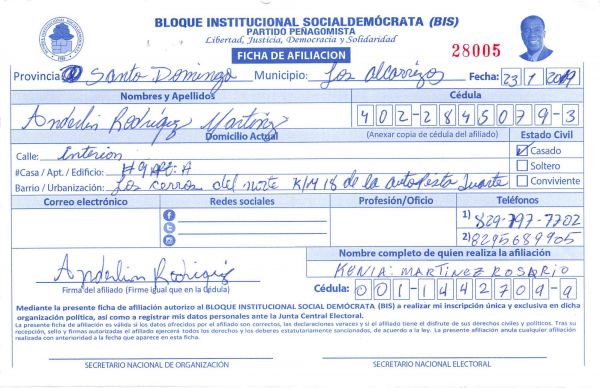 BLOQUE INSTITUCIONAL SOCIALDEMÓCRATA (BIS)
PARTIDO PEÑAGOMISTA
Libertad, Justicia, Democracia y Solidaridad
FICHA DE AFILIACION
28005
Provincia Santo Domingo Municipio: Los alcarrizos Fecha: 23/1/2019
Nombres y Apellidos Cédula
Anderlin Rodriguez Martinez 402-2845079-3
Domicilio Actual (Anexar copia de cédula del afiliado) Estado Civil
Calle: Interior Casado
#Casa / Apt. / Edificio: # 9 APT: A Soltero
Barrio / Urbanización: Los cerros del norte K/M 18 de la autopista Duarte Conviviente
Correo electrónico Redes sociales Profesión/Oficio Teléfonos
1) 829-797-7702
2) 8295689905
Nombre completo de quien realiza la afiliación
Anderlin Rodriguez KENIA MARTINEZ ROSARIO
Firma del afiliado (Firme igual que en la Cédula) Cédula: 001-1442709-9
Mediante la presente ficha de afiliación autorizo al BLOQUE INSTITUCIONAL SOCIAL DEMÓCRATA (BIS) a realizar mi inscripción única y exclusiva en dicha
organización política, así como a registrar mis datos personales ante la Junta Central Electoral.
La presente ficha de afiliación es válida si los datos ofrecidos por el afiliado son correctos, las declaraciones veraces y si el afiliado tiene el disfrute de sus derechos civiles y políticos. Tras su
recepción, sello y firmas autorizadas el afiliado ejercerá todos los derechos y los deberes estatutariamente sancionados, de acuerdo a la ley. La presente afiliación anula cualquier afiliación
realizada con anterioridad a la fecha que aparece en esta ficha.
SECRETARIO NACIONAL DE ORGANIZACIÓN SECRETARIO NACIONAL ELECTORAL